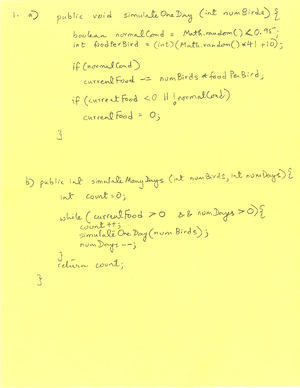 1. a) public void simulateOneDay (int numBirds) {
boolean normalCond = Math.random() < 0.95;
int foodPerBird = (int)(Math.random()*41+10);
if (normalCond)
currentFood -= numBirds * foodPerBird;
if (currentFood < 0 || !normalCond)
currentFood = 0;
}
b) public int simulateManyDays (int numBirds, int numDays) {
int count = 0;
while (currentFood > 0 && numDays > 0) {
count++;
simulateOneDay(numBirds);
numDays--;
}
return count;
}